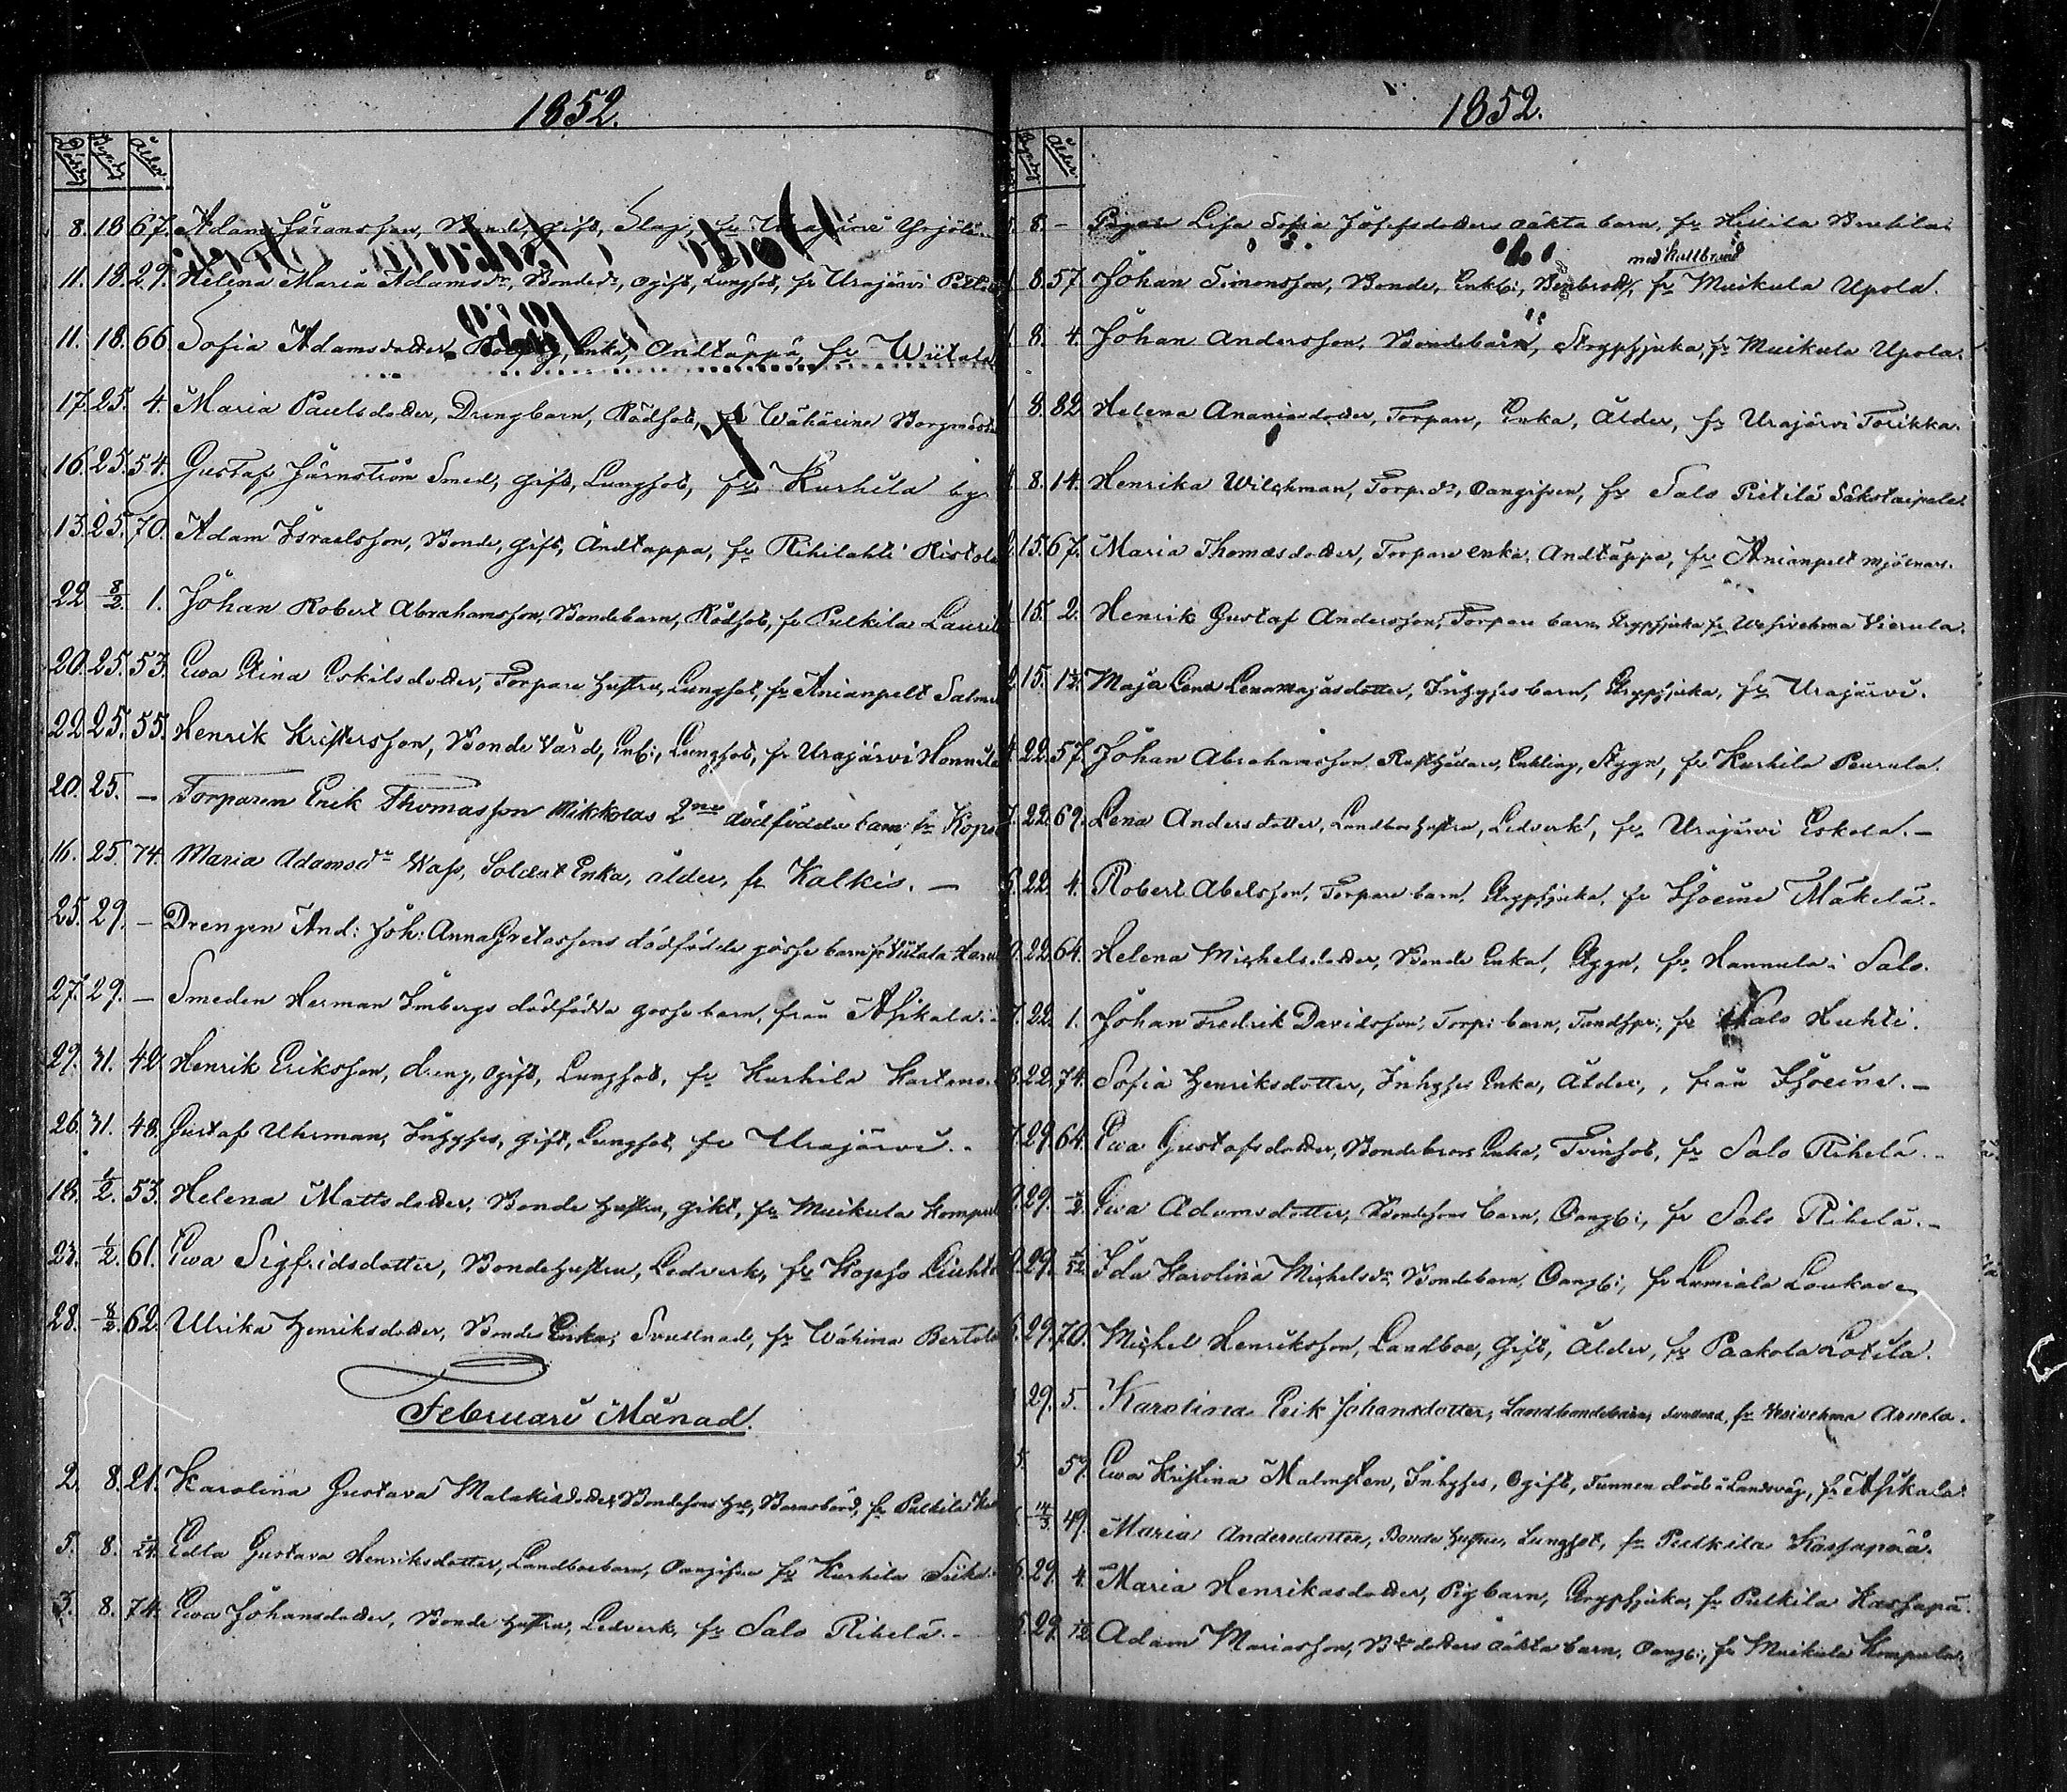 1852.
Dödde Begr. Ålder
8. 18 67. Adam Göransson, Bonde, gift, Slag, fr Urajärvi Yrjölä
11. 18. 29. Helena Maria Adamsdr, Bondedr, ogift, Lungsot, fr Urajärvi
11. 18. 66. Sofia Adamsdotter, Enka, Andtäppa, fr Wiitala
17. 25. 4. Maria Paulsdotter, Drengbarn, Rödsot, fr Wähäeine
16. 25. 54. Gustaf Järnström Smed, gift, Lungsot, fr Kurhila by
13. 25. 70. Adam Israelsson, Bonde, gift, Andtäppa, fr Riihilahti Ristola
22 8/2. 1. Johan Robert Abrahamsson, Bondebarn, Rödsot, fr Pulkila Lauril
20. 25. 53. Ewa Stina Eskilsdotter, Torpare hustru, Lungsot, fr Anianpelt Salme
22 25. 55. Henrik Kristersson, Bonde Värd, Enkl:, Lungsot, fr Urajärvi Hannula
20. 25. — Torparen Erik Thomasson Mikkolas 2ne dödfödda barn fr Kops
16. 25. 74. Maria Adamsdr Wass, Soldat Enka, ålder, fr Kalkis. —
25. 29. — Drengen And: Joh: AnnaGretassons dödfödde gosse barn fr Wiitala
27. 29. — Smeden Herman Imbergs dödfödda gosse barn, från Asikala.
29. 31. 42 Henrik Eriksson, dreng, ogift, Lungsot, fr Kurhila Hartano.
26. 31. 48. Gustaf Uhrman, Inhyses, gift, Lungsot, fr Urajärvi.
18. 1/2. 53. Helena Mattsdotter, Bonde hustru, gikt, fr Muikula Kompul
23. 1/2. 61. Ewa Sigfridsdotter, Bondehustru, Ledverk, fr
28. 8/2. 62. Ulrika Henriksdotter, Bonde Enka, Svullnad, fr Wähima Bertola
Februari Månad.
2. 8. 21. Karolina Gustava Malakiasdotter, Bondesons hu, Barnsbörd, fr Pulkila
5. 8. Edla Gustava Henriksdotter, Landboebarn, Oangifven fr Kurhila
3. 8. 74. Ewa Johansdotter, Bonde hustru, Ledverk, fr Salo Rihelä. —
1852.
Begr. Ålder
8. — Pigan Lisa Sofia Josefsdotters oäkta barn, fr Hillilä
med kallbrand
8. 57. Johan Simonsson, Bonde, Enkl:, Benbrott, fr Muikula Upola.
8. 4. Johan Andersson, Bondebarn, Strypsjuka, fr Muikula Upola.
8. 82 Helena Ananiasdotter, Torpare, Enka, Ålder, fr Urajärvi Torikka.
8. 14. Henrika Wilchman, Torp.dr, Oangifven, fr Salo Pietilä
15. 67. Maria Thomasdotter, Torpare enka, Andtäppa, fr Anianpelt mjölnars.
15. 2. Henrik Gustaf Andersson, Torpare barn, Strypsjuka fr Wesivehma Vierula.
15. Maja Lena Lenamajasdotter, Inhyses barn, Strypsjuka, fr Urajärvi.
22. 57. Johan Abrahamsson Rusthållare, Enkling, Stygn, fr Kurhila Peurula.
22. 69. Lena Andersdotter, Landboe hustru, Ledverk, fr Urajärvi Eskola. —
22 4. Robert Abelsson, Torpare barn, Strypsjuka, fr Isoeine Mäkelä.
22. 64. Helena Michelsdotter, Bonde Enka, Stygn, fr Hannula i Salo.
22. 1. Johan Fredrik Davidsson, Torp: barn, Tandspr:, fr Salo Huhti.
22. 74. Sofia Henriksdotter, Inhyses Enka, Ålder, från Isoeine. —
29. 64. Ewa Gustafsdotter, Bondebrors Enka, Tvinsot, fr Salo Rihelä. —
29. Ewa Adamsdotter, Bondesons barn, Oangb:, fr Salo Rihelä. —
29. Ida Karolina Michelsdr, Bondebarn, Oangb:, fr Lumiala Loukas
29. 70. Michel Henriksson, Landboe, gift, Ålder, fr Paakola Lotila.
29. 5. Karolina Erik Johansdotter, Landbondebarn, Svullnad, fr Wesivehma Arvela.
57. Ewa Kristina Malmsten, Inhyses, Ogift, Funnen död i Landsväg, fr Asikala.
14/3. 49. Maria Andersdotter, Bonde hustru, Lungsot, fr Pulkila Kassapää.
29. 4. Maria Henrikasdotter, Pigbarn, Strypsjuka, fr Pulkila Kassapä.
29. Adam Mariasson, Bdedotters oäkta barn, Oangb:, fr Muikula Kompula.